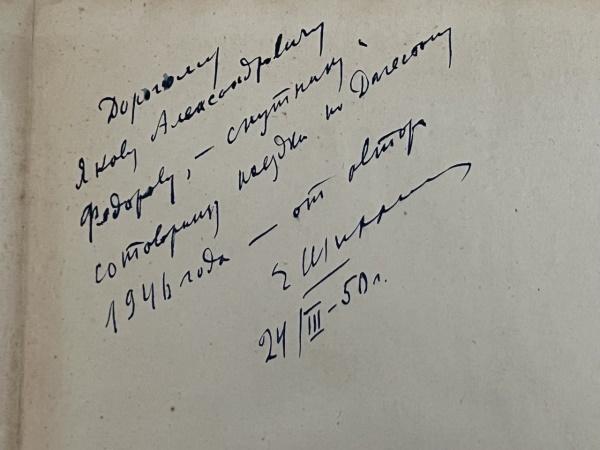 Дорогому
Якову Александровичу
Федорову, — спутнику и
сотоварищу поездки по Дагестану
1946 года — от автора
Е Шиллинг
24/III-50 г.